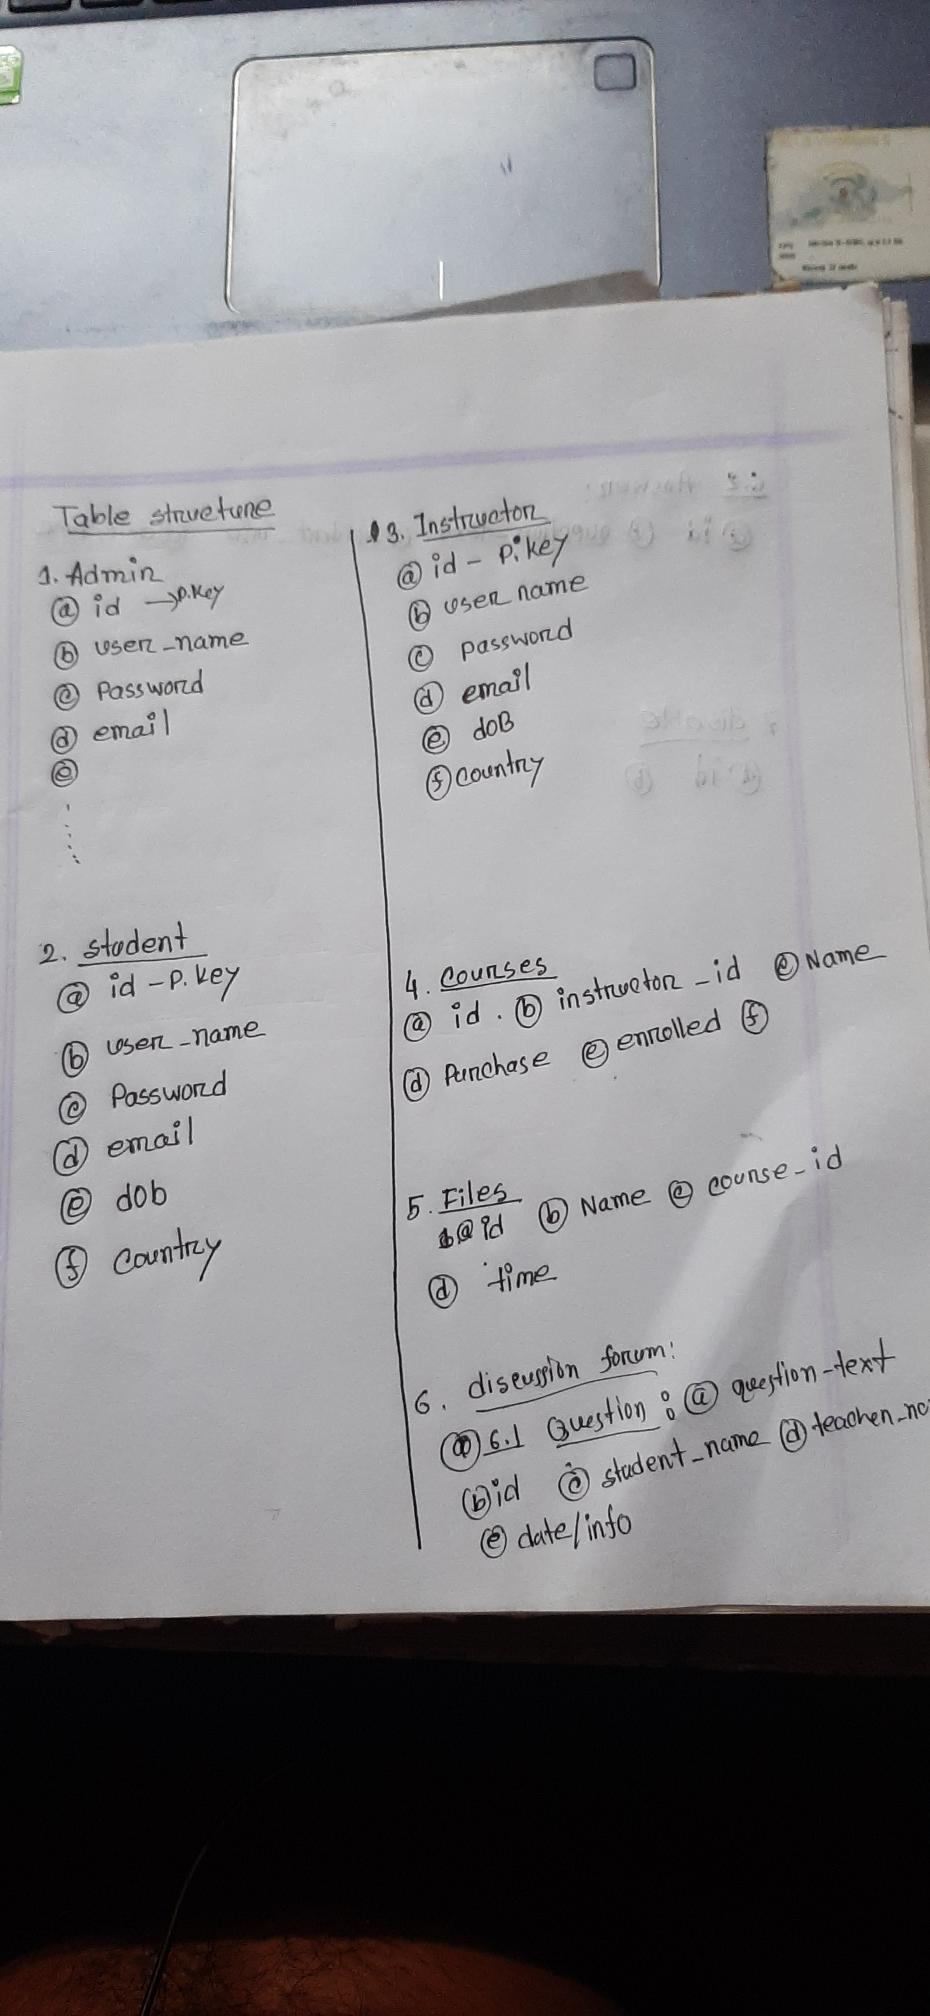 Table structure
1. Admin
ⓐ id → p.key
ⓑ user_name
ⓒ Password
ⓓ email
ⓔ
2. student
ⓐ id - p. key
ⓑ user_name
ⓒ Password
ⓓ email
ⓔ dob
ⓕ Country
3. Instructor
ⓐ id - p. key
ⓑ user name
ⓒ password
ⓓ email
ⓔ doB
ⓕ country
4. Courses
ⓐ id . ⓑ instructor_id ⓒ Name
ⓓ Purchase ⓔ enrolled ⓕ
5. Files
ⓐ id ⓑ Name ⓒ course_id
ⓓ time
6. discussion forum:
6.1 Question : ⓐ question-text
ⓑ id ⓒ student_name ⓓ teacher_na
ⓔ date/info